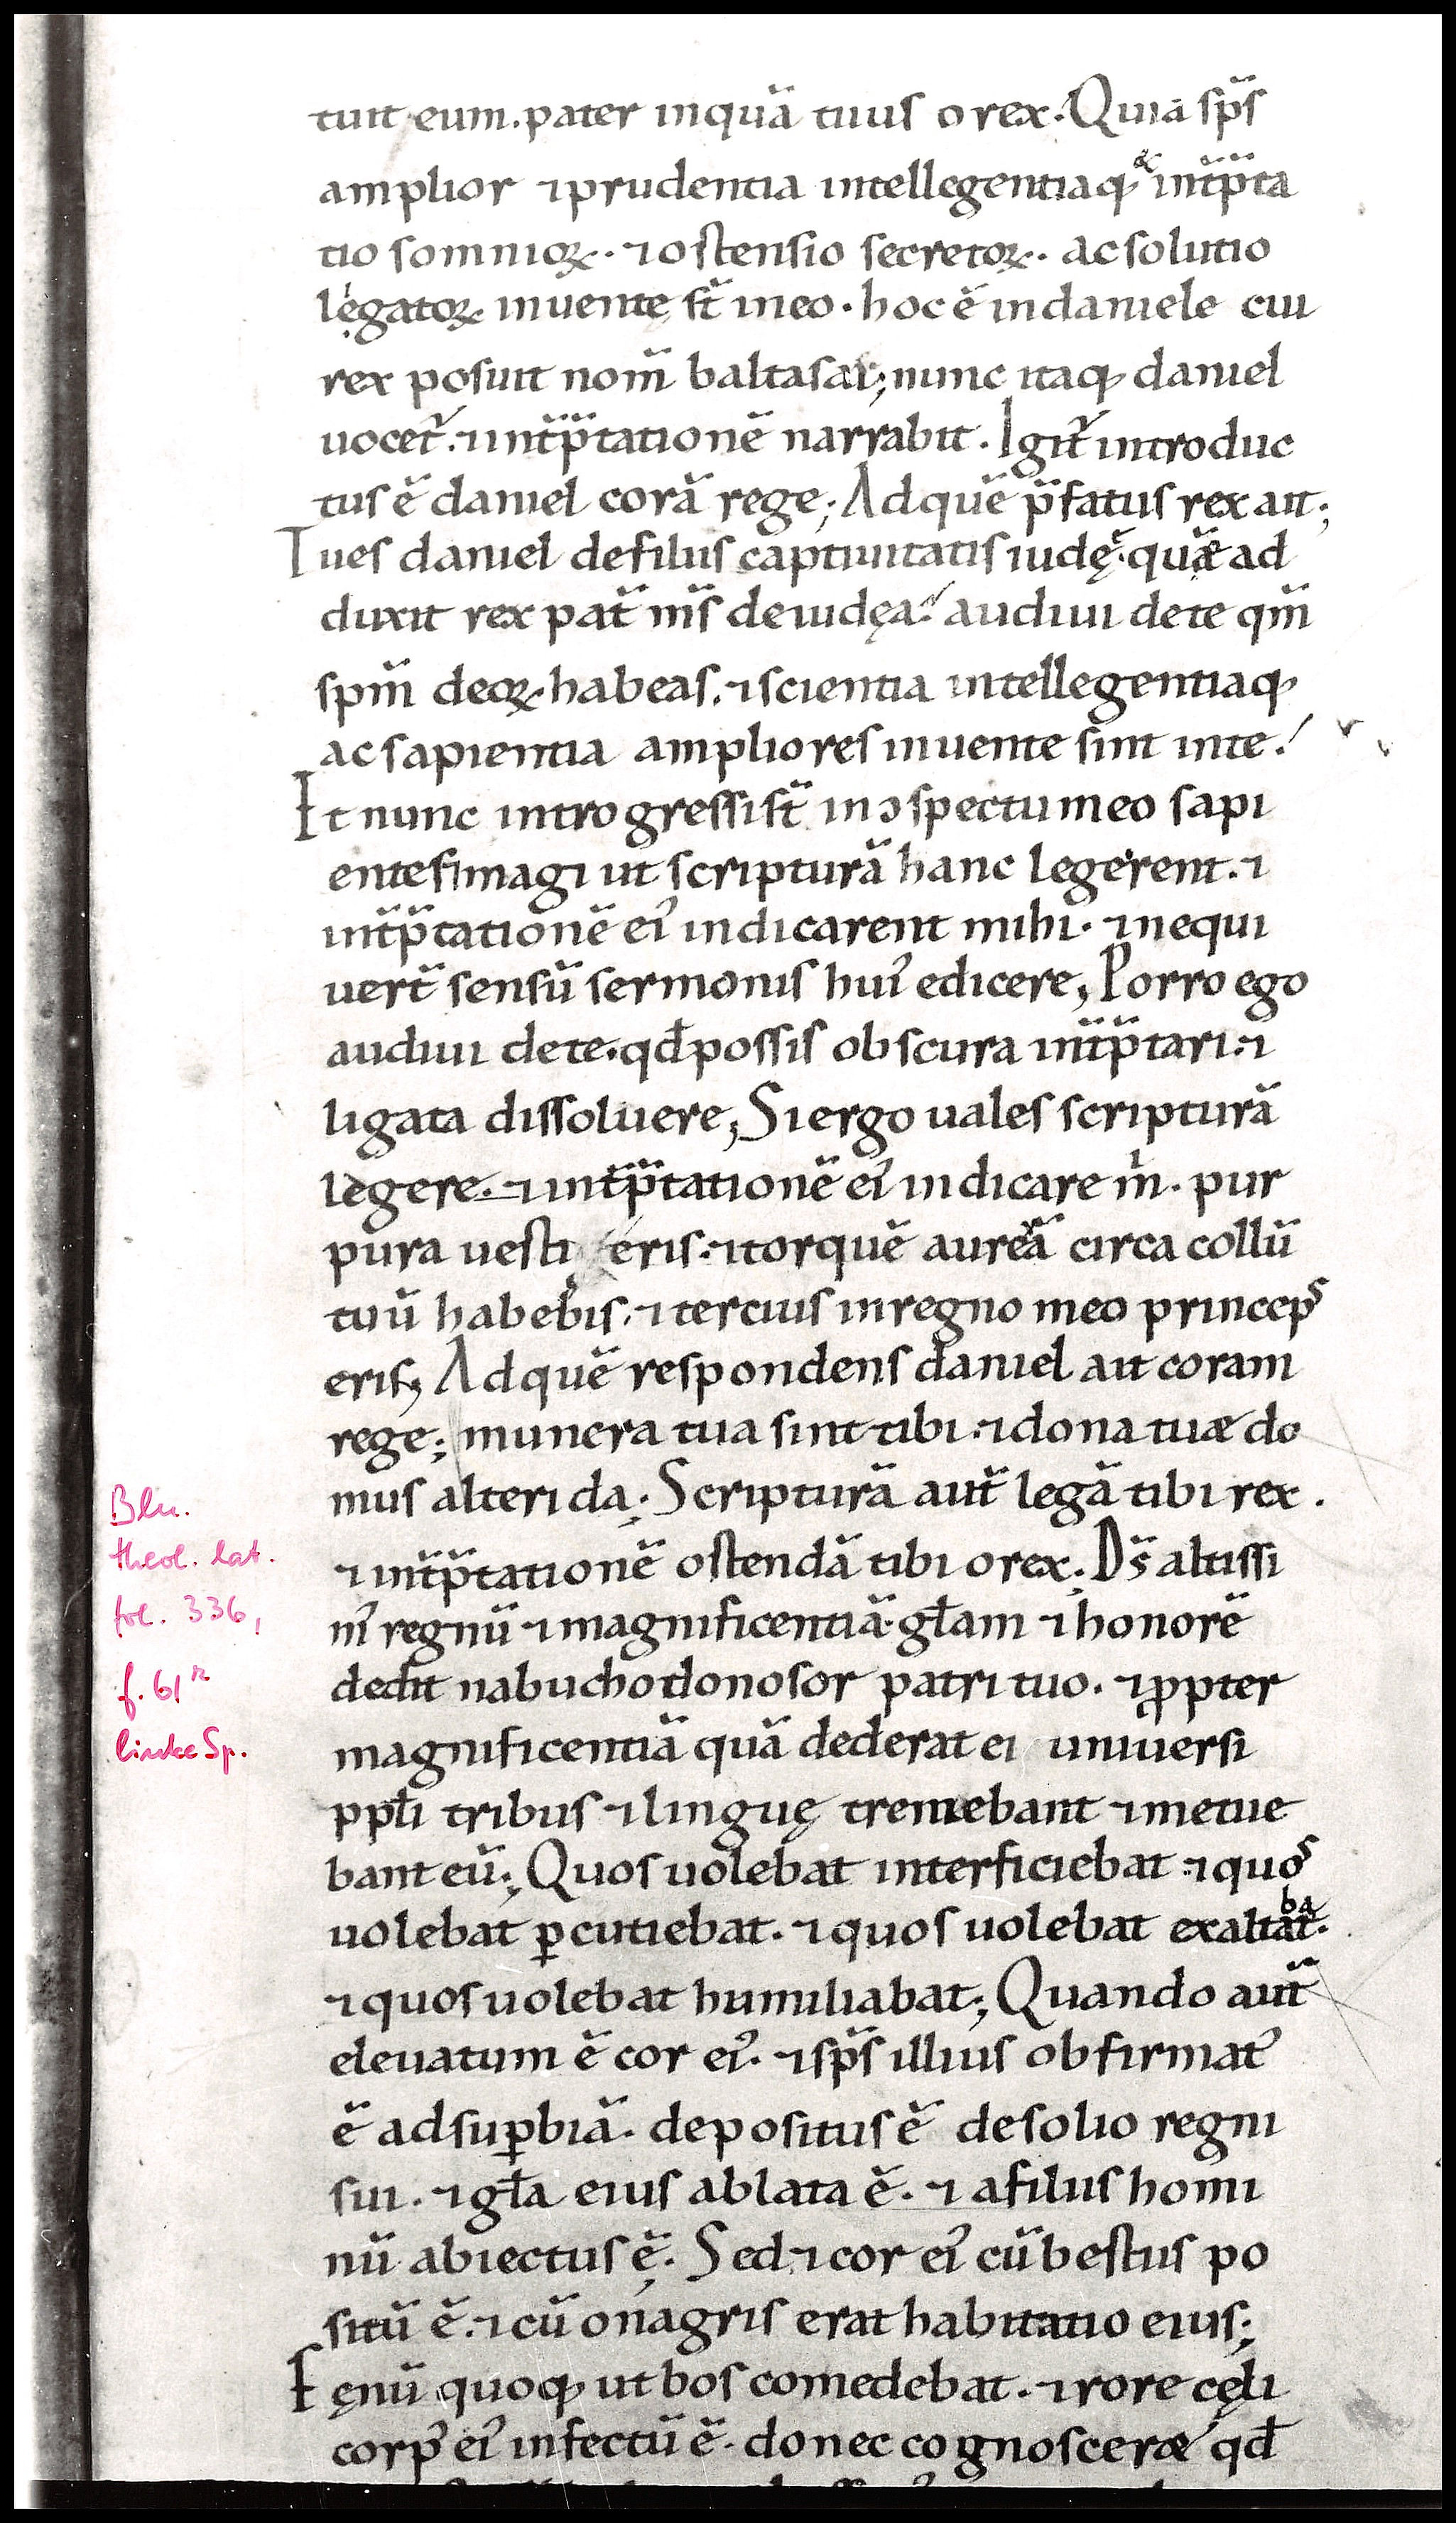 tuit eum. pater inquā tuus o rex. Quiā sp̄s
amplior ⁊prudentia intellegentiaq; & int̄p̄ta
tio somnioꝝ. ⁊ostensio secretoꝝ. ac solutio
legatoꝝ inuente st̄ in eo. hoc ē in daniele cui
rex posuit nom̄ baltasar; nunc itaq; daniel
uocet᷑. ⁊int̄p̄tationē narrabit. Igit᷑ introduc
tus ē daniel corā rege; Ad quē p̄fatus rex ait;
Tu es daniel de filiis captiuitatis iudę. quē ad
duxit rex pat̄ m̄s de iudęa. audiui de te qm̄
spm̄ deoꝝ habeas. ⁊scientia intellegentiaq;
ac sapientia ampliores inuente sint in te.
Et nunc introgressi st̄ in ↄspectu meo sapi
entes magi ut scripturā hanc legerent. ⁊
int̄p̄tationē ei᷒ indicarent mihi. ⁊nequi
uert̄ sensū sermonis hui᷒ edicere; Porro ego
audiui de te. qđ possis obscura int̄p̄tari. ⁊
ligata dissoluere; Si ergo uales scripturā
legere. ⁊int̄p̄tationē ei᷒ indicare m̍. pur
pura uesti eris. ⁊torquē aureā circa collū
tuū habebis. ⁊tercius in regno meo princeps
eris; Ad quē respondens daniel ait coram
rege; munera tua sint tibi. ⁊dona tuæ do
mus alteri da; Scripturā aut̄ legā tibi rex.
⁊int̄p̄tationē ostendā tibi o rex; Ds̄ altissi
m᷒ regnū ⁊magnificentiā. gl̄am ⁊honorē
dedit nabuchodonosor patri tuo. ⁊ꝓpter
magnificentiā quā dederat ei uniuersi
ppl̄i tribus ⁊linguę tremebant ⁊metue
bant eū; Quos uolebat interficiebat. ⁊quos
uolebat ꝑcutiebat. ⁊quos uolebat exaltabat.
⁊quos uolebat humiliabat; Quando aut̄
eleuatum ē cor ei᷒. ⁊sp̄s illius obfirmat᷒
ē ad suꝑbiā. depositus ē de solio regni
sui. ⁊gl̄a eius ablata ē. ⁊a filiis homi
nū abiectus ē. Sed ⁊cor ei᷒ cū bestiis po
sitū ē. ⁊cū onagris erat habitatio eius;
Fęnū quoq; ut bos comedebat. ⁊rore cęli
corp᷒ ei᷒ infectū ē. donec cognosceræ qđ
Bln.
theol. lat.
fol. 336,
f. 61r
linke Sp.